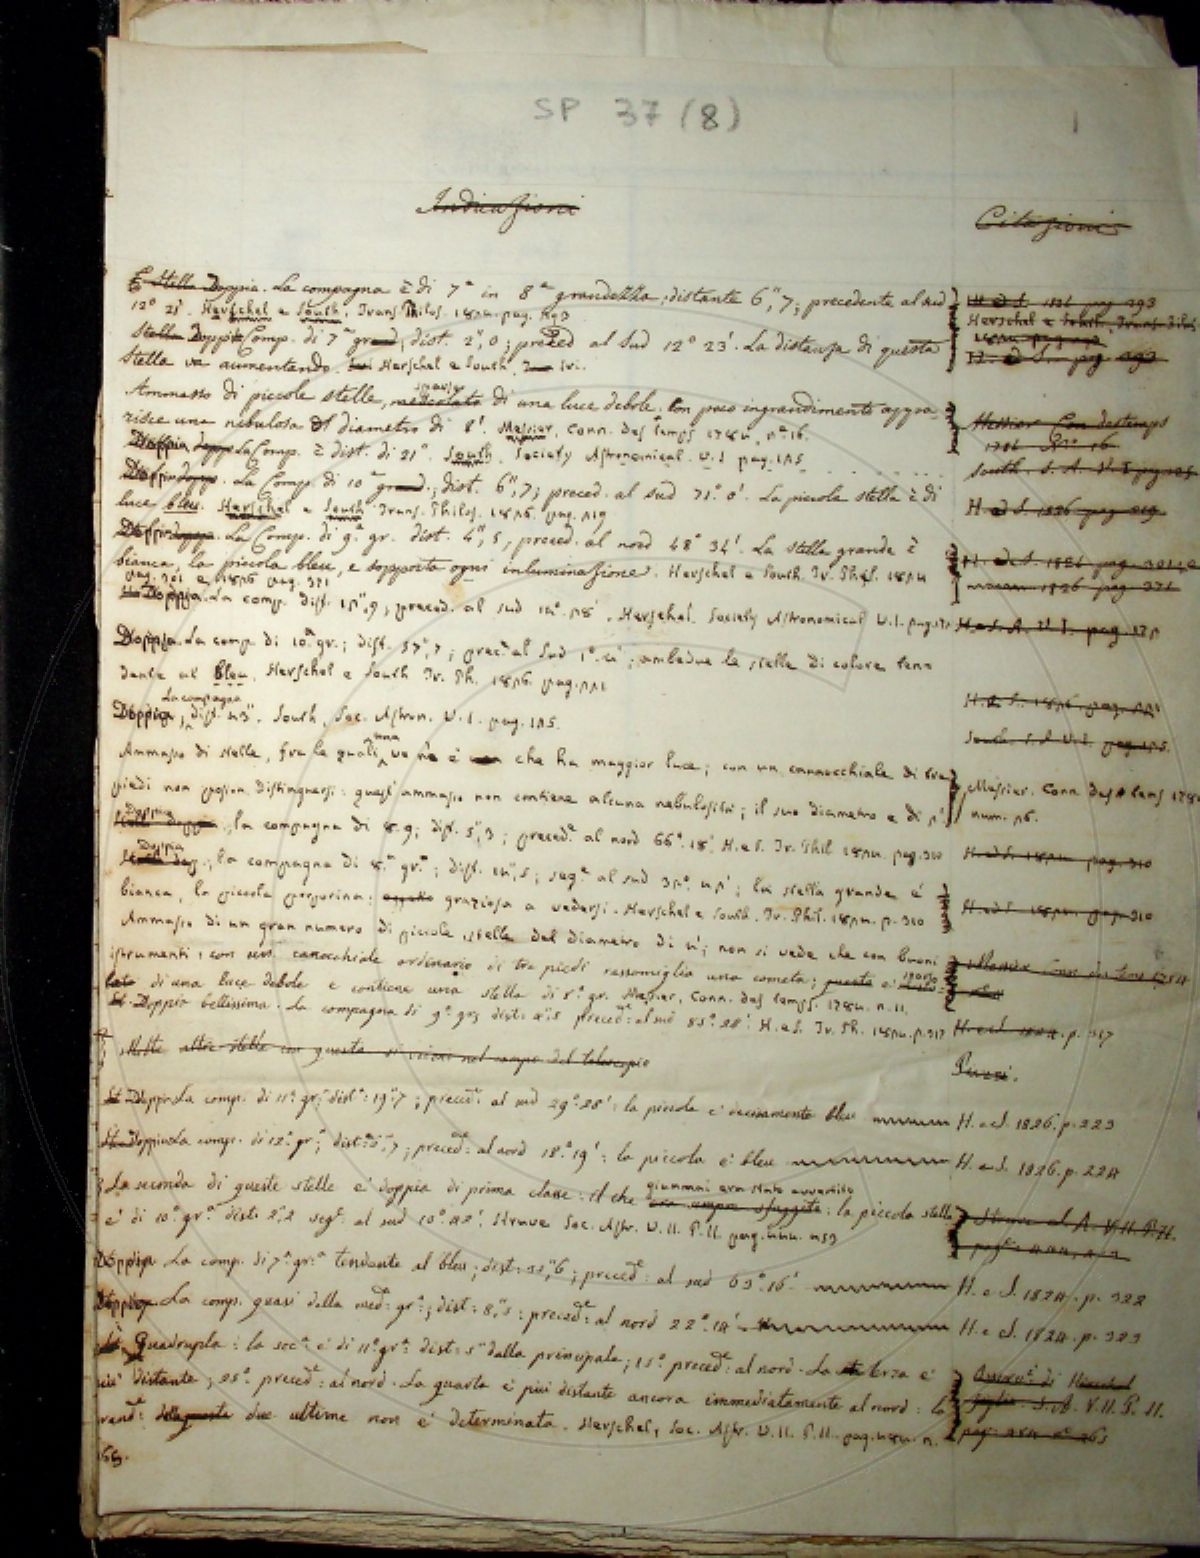 SP 37 (8)
1
Indicazioni
Citazioni
È Stella Doppia. La compagna è di 7ª in 8ª grandezza; distante 6",7; precedente al sud
H. e S. 1824 pag 293
12° 21'. Herschel e South, Trans. Philos. 1824. pag. 293
Herschel e South, Trans. Filos.
Stella Doppia Comp. di 7ª grand; dist. 2",0; preced al Sud 12° 23'. La distanza di questa
1824 pag 293
stella va aumentando. Herschel e South, Ivi.
H. e S. pag 293
Ammasso di piccole stelle, di una luce debole. Con poco ingrandimento appa
Messier Con des temps
risce una nebulosa Il diametro di 8'. Messier, Conn. des temps 1784, n° 16.
1784 N° 16
Doppia La Comp. è dist. di 21". South. Society Astronomical. V. I pag. 125
South. S. A. V. I pag 125
Doppia. La Comp. di 10ª grand.; dist. 6",7; preced. al sud 71° 0'. La piccola stella è di
luce bleu. Herschel e South Trans. Philos. 1826. pag. 219
H. e S. 1826 pag 219
Doppia. La Comp. di 9ª gr. dist. 4",5, preced. al nord 48° 34'. La stella grande è
bianca, la piccola bleu, e sopporta ogni inluminazione. Herschel e South. Tr. Phil. 1824
H. e S. 1824 pag. 301, e
pag. 301 e 1826 pag. 371
1826 pag 371
Doppia. La comp. dist. 12",9; preced. al sud 14°. 28'. Herschel. Society Astronomical V. I. pag. 172
H. e S. A. V. I. pag. 172
Doppia. La comp. di 10ª gr.; dist. 37",7; prec. al Sud 1°. 4'; ambedue le stelle di colore ten
dente al bleu. Herschel e South Tr. Ph. 1826. pag. 221
H. e S. 1826. pag. 221
La compagna
Doppia, dist. 43". South, Soc. Astron. V. I. pag. 125.
South. S. A. V. I. pag. 125.
una
Ammasso di stelle, fra le quali ve ne è che ha maggior luce; con un cannocchiale di tre
Messier. Conn. des tems 1784
piedi non posson distinguersi: quest'ammasso non contiene alcuna nebulosità; il suo diametro e di 2'
num. 26.
Doppia
Stella doppia, la compagna di 8.9; dist. 5",3; preced.e al nord 66°. 18'. H. e S. Tr. Phil 1824. pag. 310
H. e S. 1824 pag. 310
Doppia
Stella dop., la compagna di 8.ª gr.ª; dist. 14",5; seg.e al sud 32°. 42'; la stella grande è
bianca, la piccola porporina: oggetto graziosa a vedersi. Herschel e South. Tr. Phil. 1824. p. 310
H. e S. 1824. pag. 310
Ammasso di un gran numero di piccole stelle del diametro di 4'; non si vede che con buoni
istrumenti; con un canocchiale ordinario di tre piedi rassomiglia una cometa; questo è
Messier Conn des tems 1784
lato di una luce debole e contiene una stella di 8ª. gr. Messier, Conn. des temps. 1784. n. 11.
St. Doppia bellissima. La compagna di 9ª gr; dist: 2",5 preced.e: al sud 85°. 28'. H. e S. Tr. Ph. 1824. p. 317
H. e S. 1824. p. 317
Molte altre stelle con questa si vicini nel campo del telescopio
Piazzi.
St. Doppia La comp. di 11ª gr; dist: 19",7; preced.e: al sud 29°. 28': la piccola è decisamente bleu
H. e S. 1826. p. 223
St. Doppia La comp. di 12ª gr; preced.e: al nord 18°. 19': la piccola è bleu
H. e S. 1826. p. 224
La seconda di queste stelle è doppia di prima classe: il che era sempre sfuggito: la piccola stella
giammai era stato avvertito
Struve S. A. V. II. P. II.
è di 10ª gr.ª dist: 2",2 seg.e al sud 10°. 42'. Struve Soc. Astr. V. II. P. II. pag. 444. n 53
Doppia La comp. di 7ª gr:ª tendente al bleu; dist: 32",6; preced.e: al sud 63°. 16'
H. e S. 1824. p. 322
Doppia La comp. quasi della med: gr.ª; dist: 8",2: preced.e: al nord 22°. 14'.
H. e S. 1824. p. 323
Quadrupla: la sec.ª è di 11ª gr.ª dist: 5" dalla principale; 15°. preced.e: al nord. La terza è
di Herschel
più distante; 25°. preced.e: al nord. La quarta è più distante ancora immediatamente al nord: la
figlio. S. A. V. II. P. II.
grand: delle due ultime non è determinata. Herschel, Soc. Astr. V. II. P. II. pag. 484. n.